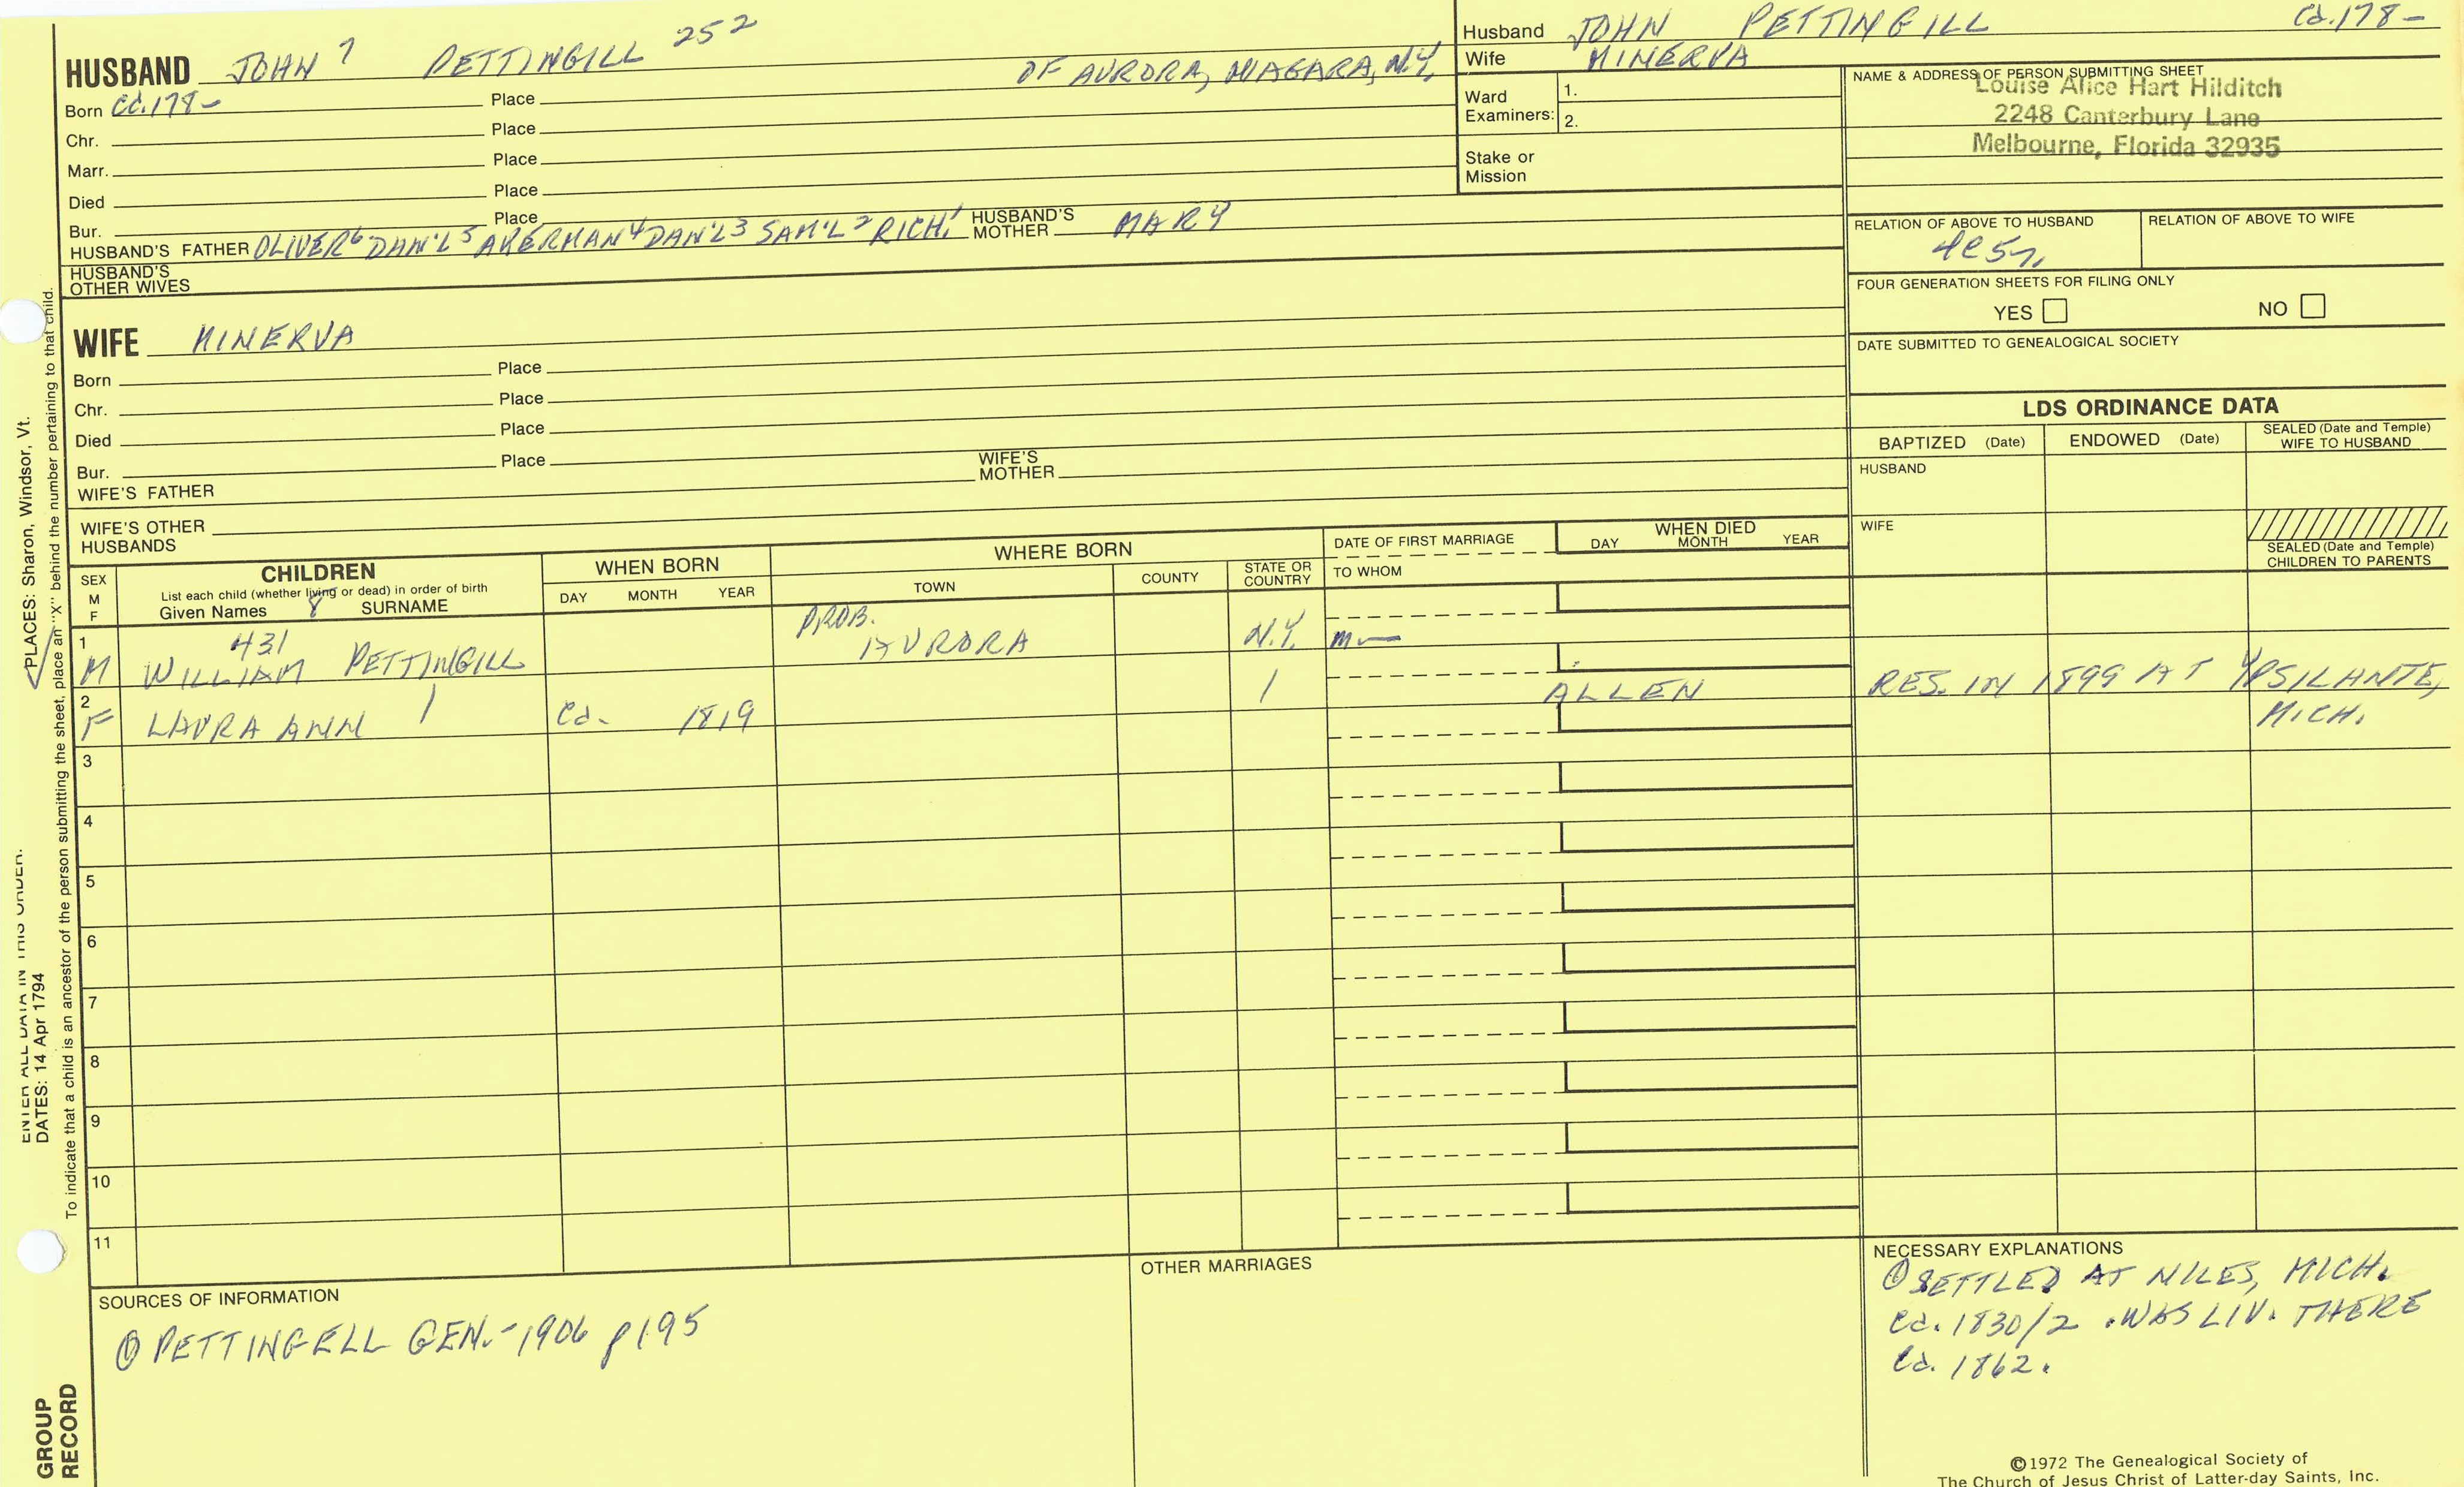 HUSBAND JOHN 7 PETTINGILL 252
OF AURORA, NIAGARA, N.Y.
Born Ca. 178- Place
Chr. Place
Marr. Place
Died Place
Bur. Place
HUSBAND'S FATHER OLIVER 6 DAN'L 5 AKERMAN 4 DAN'L 3 SAM'L 2 RICH. 1 HUSBAND'S MOTHER MARY
HUSBAND'S OTHER WIVES
WIFE MINERVA
Born Place
Chr. Place
Died Place
Bur. Place
WIFE'S FATHER
WIFE'S MOTHER
WIFE'S OTHER HUSBANDS
Husband JOHN PETTINGILL Ca. 178-
Wife MINERVA
Ward Examiners: 1. 2.
Stake or Mission
NAME & ADDRESS OF PERSON SUBMITTING SHEET
Louise Alice Hart Hilditch
2248 Canterbury Lane
Melbourne, Florida 32935
RELATION OF ABOVE TO HUSBAND
RELATION OF ABOVE TO WIFE
FOUR GENERATION SHEETS FOR FILING ONLY
YES NO
DATE SUBMITTED TO GENEALOGICAL SOCIETY
LDS ORDINANCE DATA
BAPTIZED (Date) ENDOWED (Date) SEALED (Date and Temple) WIFE TO HUSBAND
HUSBAND
WIFE
SEALED (Date and Temple) CHILDREN TO PARENTS
SEX M F
CHILDREN
List each child (whether living or dead) in order of birth
Given Names 8 SURNAME
WHEN BORN
DAY MONTH YEAR
WHERE BORN
TOWN COUNTY STATE OR COUNTRY
DATE OF FIRST MARRIAGE
TO WHOM
WHEN DIED
DAY MONTH YEAR
1 M 431 WILLIAM PETTINGILL PROB. AURORA N.Y. m—
2 F LAURA ANN Ca. 1819 ALLEN RES. IN 1899 AT YPSILANTE, MICH.
3
4
5
6
7
8
9
10
11
SOURCES OF INFORMATION
① PETTINGELL GEN.-1906 p195
OTHER MARRIAGES
NECESSARY EXPLANATIONS
① SETTLED AT NILES, MICH.
Ca. 1830/2. WAS LIV. THERE
Ca. 1862.
©1972 The Genealogical Society of
The Church of Jesus Christ of Latter-day Saints, Inc.
GROUP
RECORD
ENTER ALL DATA IN THIS ORDER.
DATES: 14 Apr 1794
PLACES: Sharon, Windsor, Vt.
To indicate that a child is an ancestor of the person submitting the sheet, place an "X" behind the number pertaining to that child.